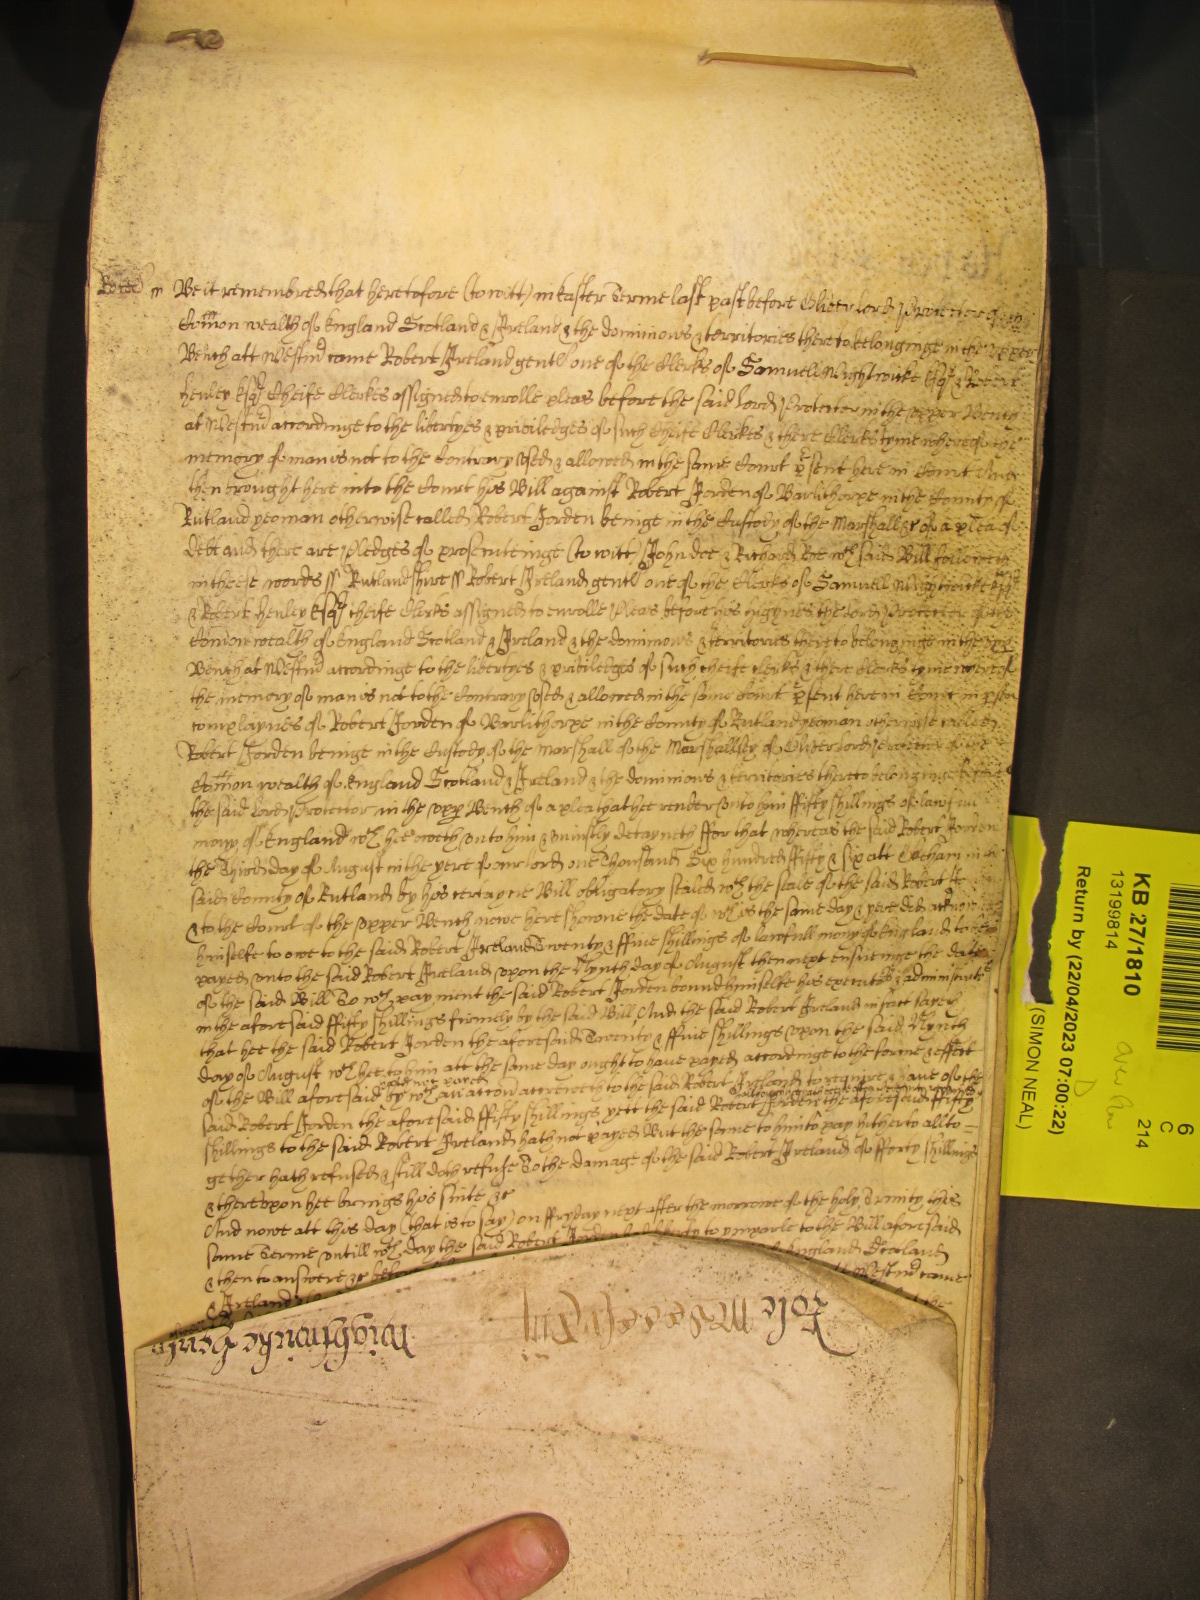 Be it remembred that heretofore (to witt) in Easter Terme last past before Oliver Lord Protector of the
Comon wealth of England Scotland & Ireland & the dominions & territories thereto belonginge in the upper
Bench att Westm̃ came Robert Ireland gentl one of the Clerks of Samuell Wightwicke Esqr & Robert
Henley Esqr Cheife Clerkes assigned to enrolle pleas before the said Lord Protector in the upper Bench
at Westm̃ accordinge to the libertyes & priviledges of such Cheife Clerkes & there Clerks tyme whereof the
memory of man is not to the Contrary used & allowed in the same Court p̃sent here in Court
then brought here into the Court his Bill against Robert Jorden of Barlithorpe in the County of
Rutland yeoman otherwise called Robert Jorden beinge in the Custody of the Marshall &c of a plea of
debt and there are pledges of prosecuteinge (to witt) John doe & Richard Roe wch said Bill followeth
in theese words ss Rutlandshire ss Robert Ireland gentl one of the Clerks of Samuell Wightwicke Esqr
& Robert Henley Esqr cheife Clerks assigned to enrolle Pleas before his highnes the Lord Protector of the
Comon wealth of England Scotland & Ireland & the dominions & territories thereto belonginge in the upp
Bench at Westm̃ accordinge to the libertyes & priviledges of such cheife Clerks & there Clerks tyme whereof
the memory of man is not to the Contrary used & allowed in the same Court p̃sent here in Court in p̃son
complaynes of Robert Jorden of Barlithorpe in the County of Rutland yeoman otherwise called
Robert Jorden beinge in the Custody of the Marshall of the Marshallsey of Oliver Lord Protector of the
Comon wealth of England Scotland & Ireland & the dominions & territories thereto belonginge before
the said Lord Protector in the upp Bench of a plea that hee render unto him ffifty shillings of lawfull
mony of England wch hee oweth unto him & uniustly detayneth ffor that whereas the said Robert Jorden
the Third day of August in the yere of our lord one Thousand Six hundred ffifty & six att Okeham in the
said County of Rutland by his certayne Bill obligatory sealed wth the seale of the said Robert Jo
& to the Court of the upper Bench nowe here showne the date of wch is the same day & yere did acknowledge
himselfe to owe to the said Robert Ireland Twenty & ffive shillings of lawfull mony of England to bee
payed unto the said Robert Ireland upon the Nynth day of August then next ensueinge the date
of the said Bill To wch payment the said Robert Jorden bound himselfe his executors & administrators
in the aforesaid ffifty shillings firmely by the said Bill And the said Robert Ireland in fact sayeth
that hee the said Robert Jorden the aforesaid Twenty & ffive shillings upon the said Nynth
day of August wch hee to him att the same day ought to have payed accordinge to the forme & effect
of the Bill aforesaid did not payeth by wch an action accreweth to the said Robert Ireland to require & have of the
said Robert Jorden the aforesaid ffifty shillings yett the said Robert Jorden the aforesaid ffifty
shillings to the said Robert Ireland hath not payed But the same to him to pay hitherto allto=
gether hath refused & still doth refuse To the damage of the said Robert Ireland of fforty shillings
& thereupon hee brings his suite &c
And nowe att this day (that is to say) on ffryday next after the morrowe of the holy Trinity this
same Terme untill wch day the said Robert Jorden had liberty to emparle to the Bill aforesaid
& then to answere &c before England Scotland
& Ireland att Westm̃ came
Wightwicke Henley
KB 27/1810
13199814
Return by (22/04/2023 07:00:22)
(SIMON NEAL)
6
C
214
D